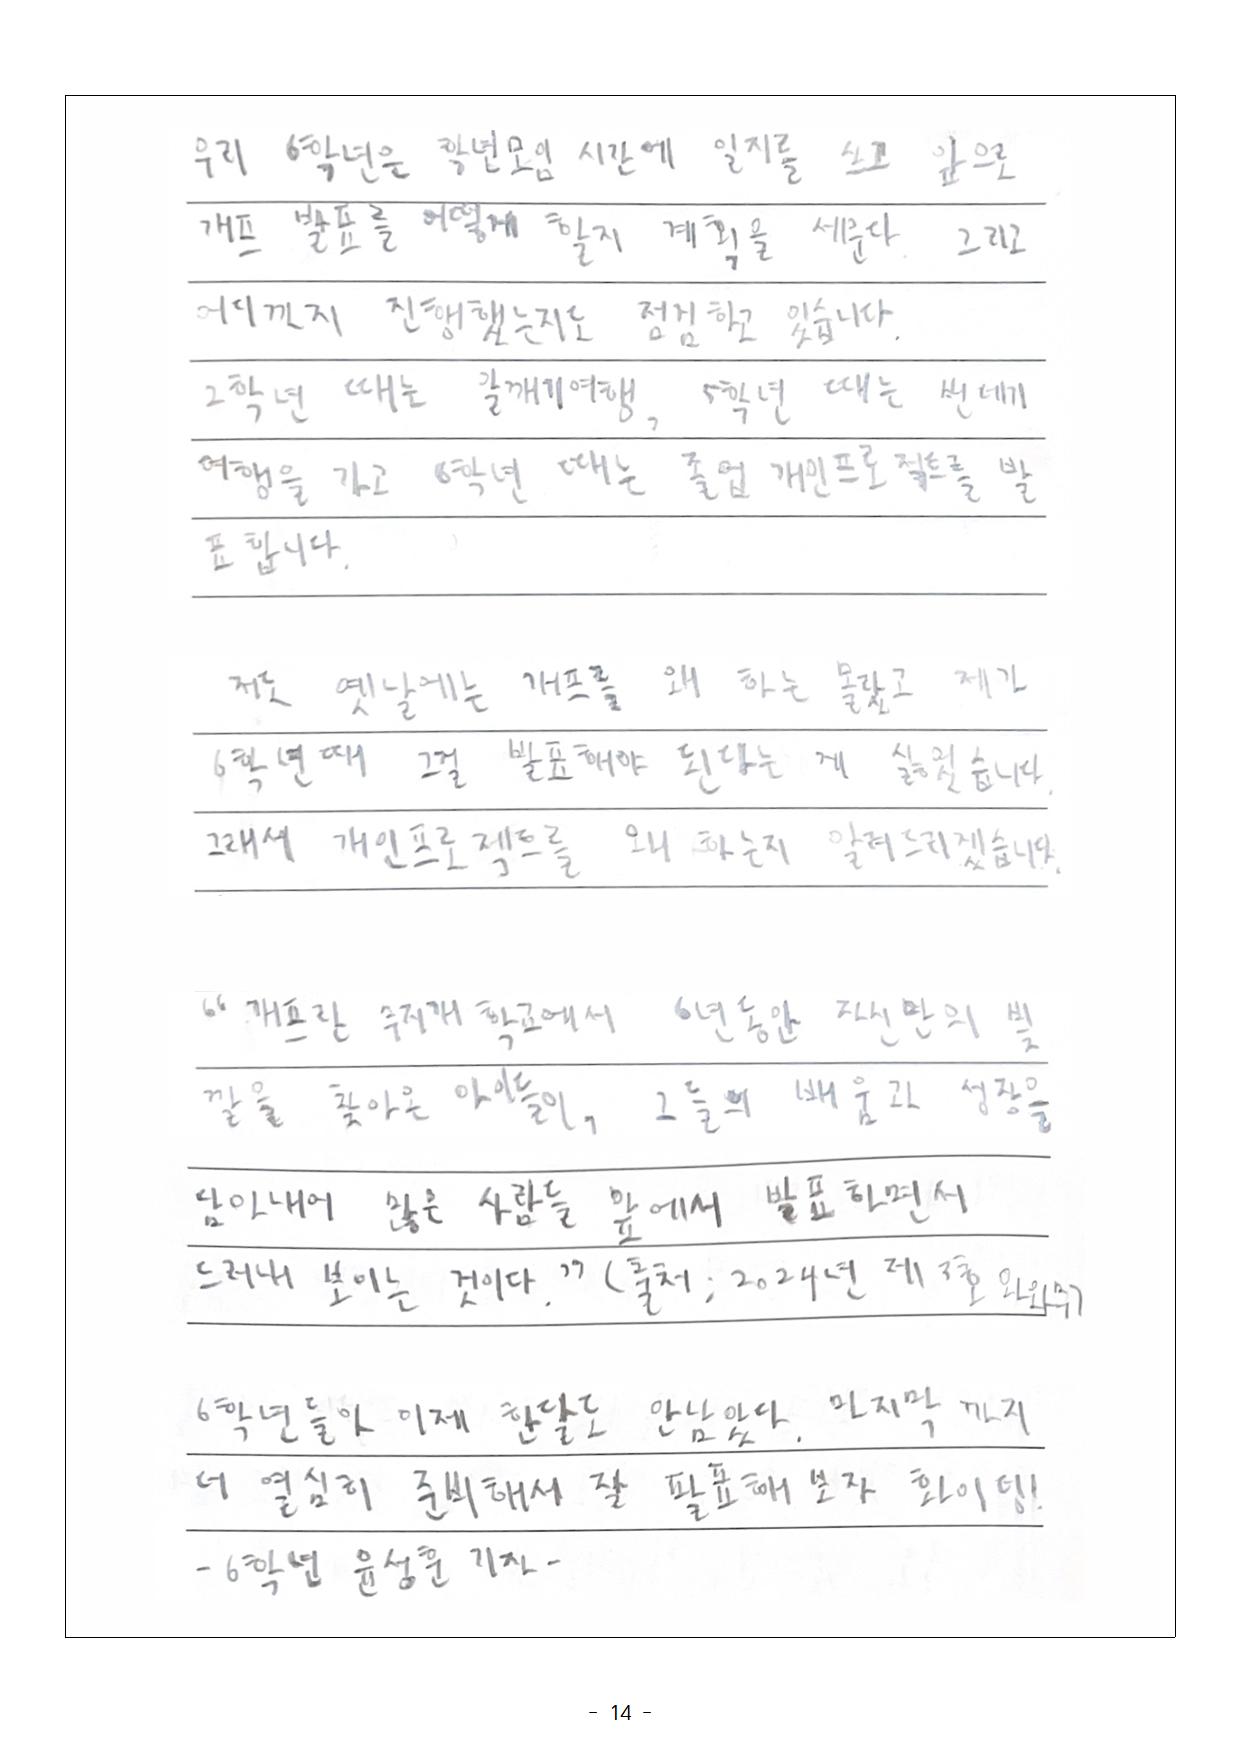 우리 6학년은 학년모임 시간에 일지를 쓰고 앞으로
개프 발표를 어떻게 할지 계획을 세운다. 그리고
어디까지 진행했는지도 점검하고 있습니다.
2학년 때는 갈깨기여행, 5학년 때는 번데기
여행을 가고 6학년 때는 졸업 개인프로젝트를 발
표합니다.
저도 옛날에는 개프를 왜 하는 몰랐고 제가
6학년때 그걸 발표해야 된답는 게 싫었습니다.
그래서 개인프로젝트를 왜 하는지 알려드리겠습니다.
“개프란 무지개 학교에서 6년동안 자신만의 빛
깔을 찾아온 아이들이, 그들의 배움과 성장을
담아내어 많은 사람들 앞에서 발표하면서
드러내 보이는 것이다.” (출처; 2024년 제3호 와와무)
6학년들아 이제 한달도 안남았다. 마지막 까지
더 열심히 준비해서 잘 발표해 보자 화이팅!
- 6학년 윤성훈 기자 -
- 14 -